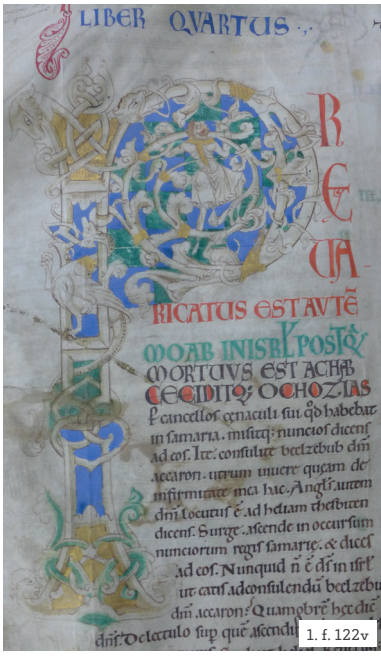 LIBER QVARTUS
P
R
E
UA
RICATUS EST AVTĒ
MOAB IN ISRL POSTQ
MORTUVS EST ACHAB
CECIDITQ; OCHOZIAS
p cancellos cenaculi sui qd habebat
in samaria. misitq; nuncios dicens
ad eos. Ite. consulite beelzebub dm̄
accaron. utrum uiuere queam de
infirmitate mea hac. Angls autem
dni locutus ē ad heliam thesbiten
dicens. Surge. ascende in occursum
nunciorum regis samarie. & dices
ad eos. Nunquid n̄ ē ds̄ in isrl
ut eatis ad consulendū beelzebu
dm̄ accaron? Quamobrē hec dic
dns̄. De lectulo sup quē ascendi
1. f. 122v